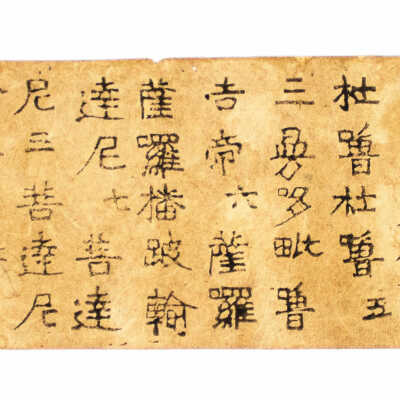 杜嚕杜嚕五
三曼多毗魯
吉帝六薩羅
薩羅播跛輸
達尼七菩達
尼三菩達尼